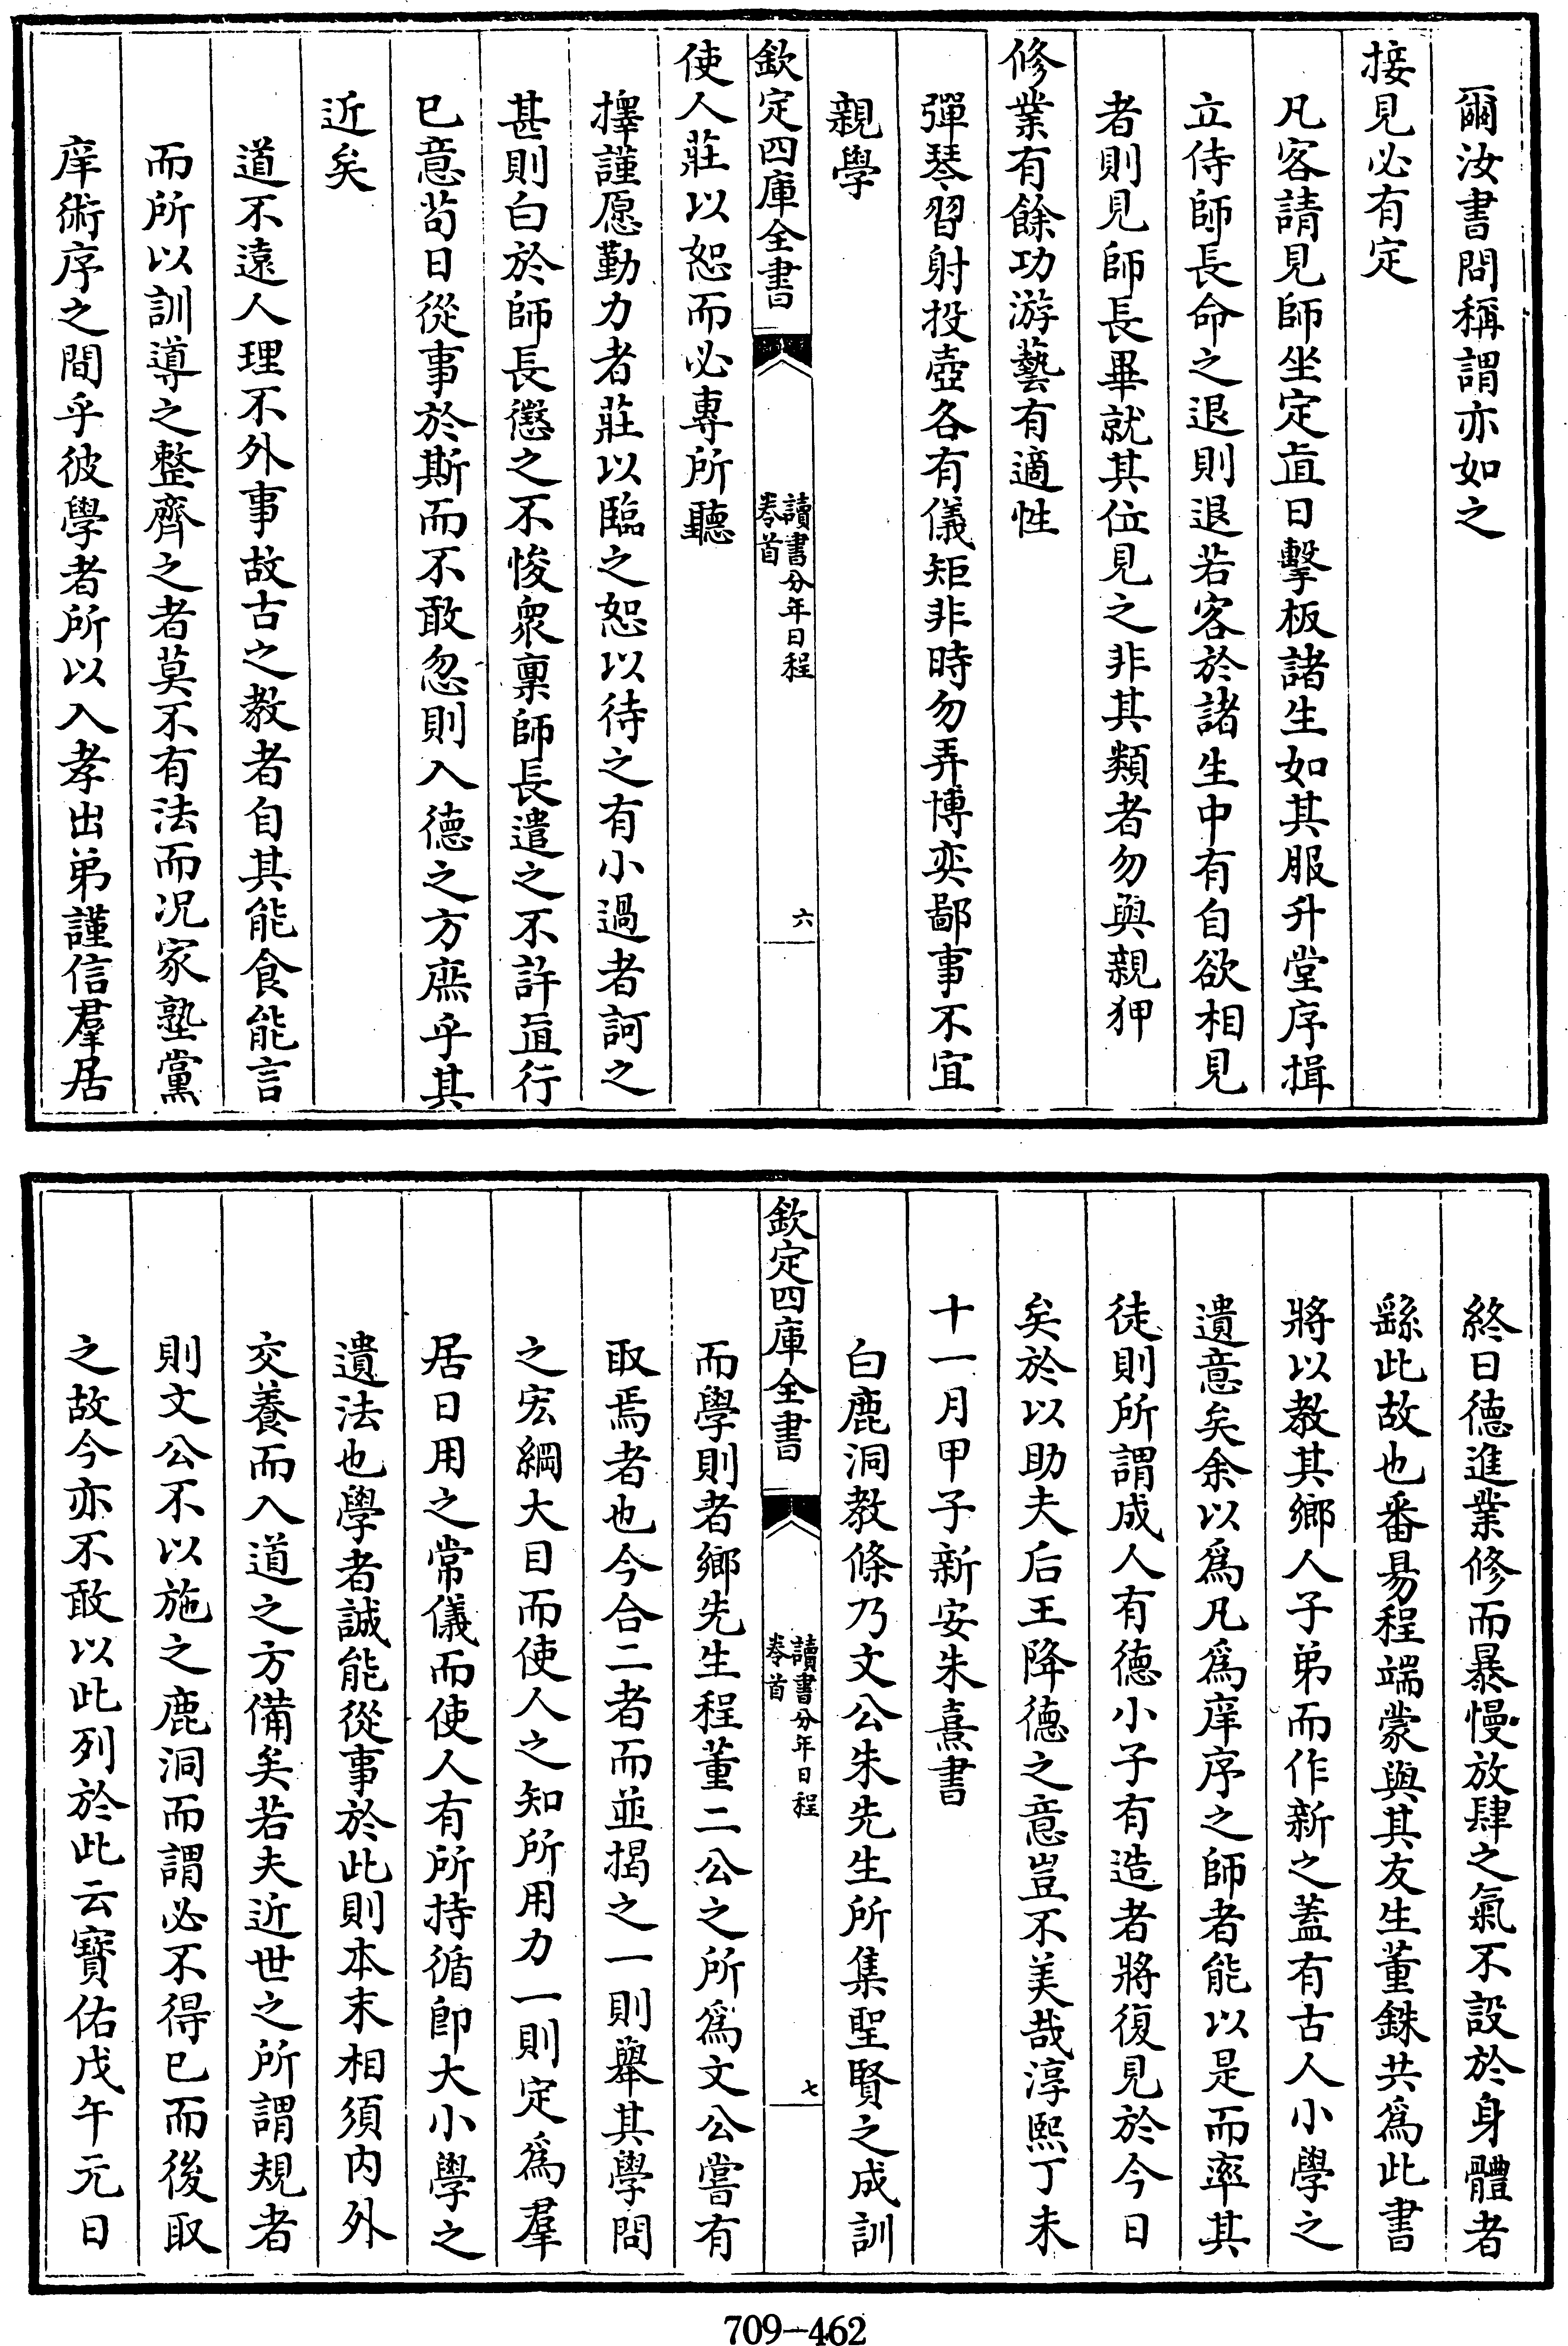 爾汝書問稱謂亦如之
接見必有定
凡客請見師坐定直日擊板諸生如其服升堂序揖
立侍師長命之退則退若客於諸生中有自欲相見
者則見師長畢就其位見之非其類者勿與親狎
修業有餘功游藝有適性
彈琴習射投壺各有儀矩非時勿弄博奕鄙事不宜
親學
欽定四庫全書
讀書分年日程
卷首
六
使人莊以恕而必專所聽
擇謹愿勤力者莊以臨之恕以待之有小過者訶之
甚則白於師長懲之不悛衆稟師長遣之不許直行
已意苟日從事於斯而不敢忽則入德之方庶乎其
近矣
道不遠人理不外事故古之教者自其能食能言
而所以訓導之整齊之者莫不有法而況家塾黨
庠術序之間乎彼學者所以入孝出弟謹信羣居
終日德進業修而暴慢放肆之氣不設於身體者
繇此故也番易程端蒙與其友生董銖共爲此書
將以教其鄉人子弟而作新之蓋有古人小學之
遺意矣余以爲凡爲庠序之師者能以是而率其
徒則所謂成人有德小子有造者將復見於今日
矣於以助夫后王降德之意豈不美哉淳熙丁未
十一月甲子新安朱熹書
白鹿洞教條乃文公朱先生所集聖賢之成訓
欽定四庫全書
讀書分年日程
卷首
七
而學則者鄉先生程董二公之所爲文公嘗有
取焉者也今合二者而並揭之一則舉其學問
之宏綱大目而使人之知所用力一則定爲羣
居日用之常儀而使人有所持循卽大小學之
遺法也學者誠能從事於此則本末相須内外
交養而入道之方備矣若夫近世之所謂規者
則文公不以施之鹿洞而謂必不得已而後取
之故今亦不敢以此列於此云寶佑戊午元日
709-462